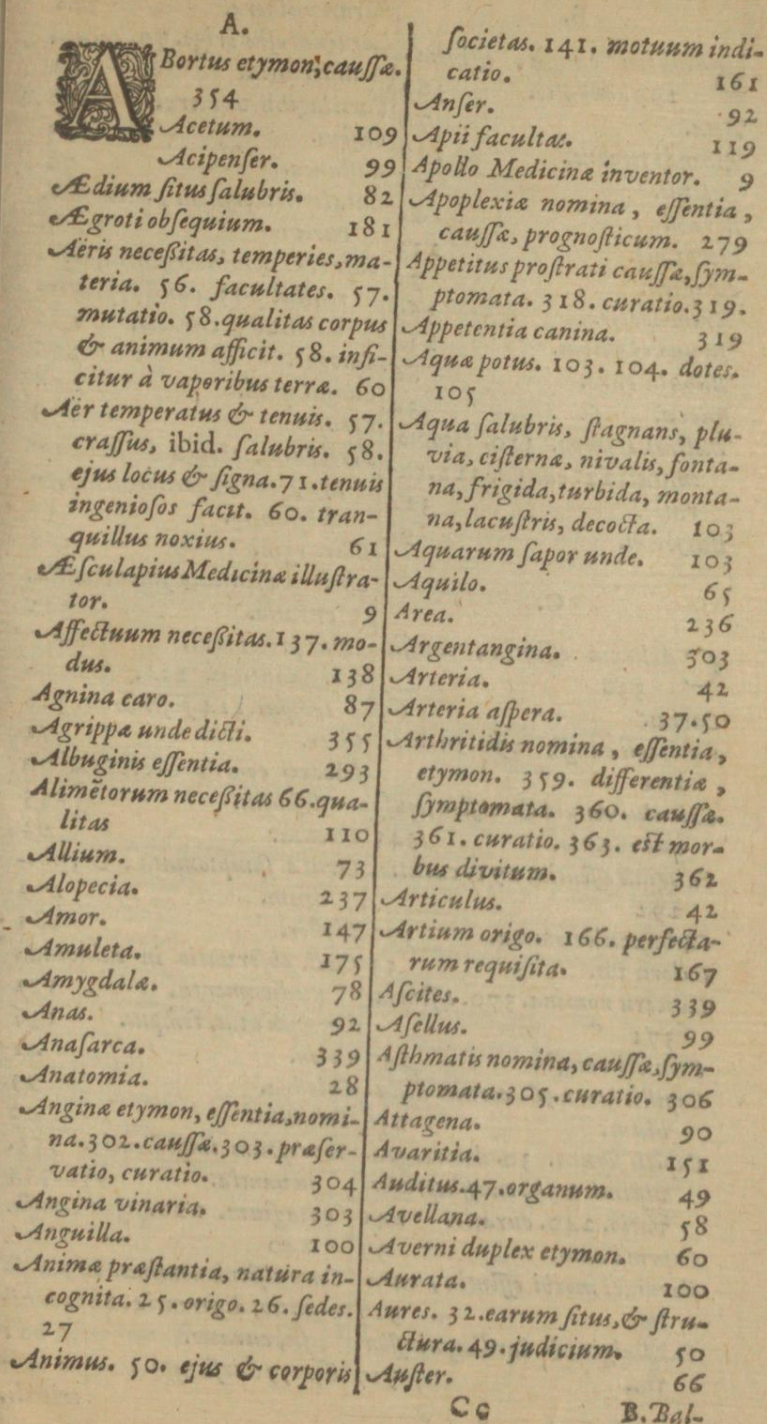 A.
ABortus etymon, caussæ.
354
Acetum. 109
Acipenser. 99
Ædium situs salubris. 82
Ægroti obsequium. 181
Aëris necessitas, temperies, ma-
teria. 56. facultates. 57.
mutatio. 58. qualitas corpus
& animum afficit. 58. infi-
citur à vaporibus terræ. 60
Aër temperatus & tenuis. 57.
crassus, ibid. salubris. 58.
ejus locus & signa. 71. tenuis
ingeniosos facit. 60. tran-
quillus noxius. 61
Æsculapius Medicinæ illustra-
tor. 9
Affectuum necessitas. 137. mo-
dus. 138
Agnina caro. 87
Agrippæ unde dicti. 355
Albuginis essentia. 293
Alimētorum necessitas 66. qua-
litas 110
Allium. 73
Alopecia. 237
Amor. 147
Amuleta. 175
Amygdalæ. 78
Anas. 92
Anasarca. 339
Anatomia. 28
Anginæ etymon, essentia, nomi-
na. 302. caussæ. 303. præser-
vatio, curatio. 304
Angina vinaria. 303
Anguilla. 100
Animæ præstantia, natura in-
cognita. 25. origo. 26. sedes.
27
Animus. 50. ejus & corporis
societas. 141. motuum indi-
catio. 161
Anser. 92
Apii facultas. 119
Apollo Medicinæ inventor. 9
Apoplexiæ nomina, essentia,
caussæ, prognosticum. 279
Appetitus prostrati caussæ, sym-
ptomata. 318. curatio. 319.
Appetentia canina. 319
Aquæ potus. 103. 104. dotes.
105
Aqua salubris, stagnans, plu-
via, cisternæ, nivalis, fonta-
na, frigida, turbida, monta-
na, lacustris, decocta. 103
Aquarum sapor unde. 103
Aquilo. 65
Area. 236
Argentangina. 303
Arteria. 42
Arteria aspera. 37. 50
Arthritidis nomina, essentia,
etymon. 359. differentiæ,
symptomata. 360. caussæ.
361. curatio. 363. est mor-
bus divitum. 362
Articulus. 42
Artium origo. 166. perfecta-
rum requisita. 167
Ascites. 339
Asellus. 99
Asthmatis nomina, caussæ, sym-
ptomata. 305. curatio. 306
Attagena. 90
Avaritia. 151
Auditus. 47. organum. 49
Avellana. 58
Averni duplex etymon. 60
Aurata. 100
Aures. 32. earum situs, & stru-
ctura. 49. judicium. 50
Auster. 66
Cc B. Bal-